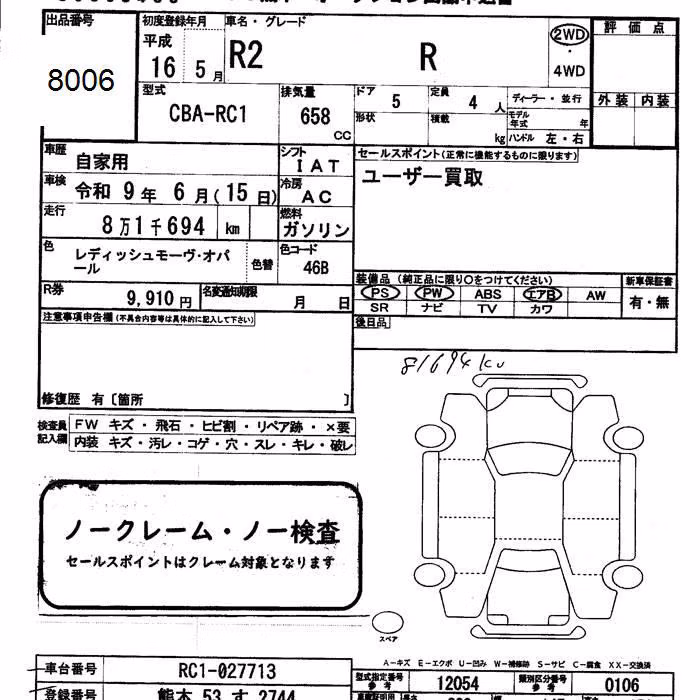 出品番号 初度登録年月 車名・グレード 評価点
8006 平成 16 5月 R2 R 2WD
4WD
型式 排気量 ドア 定員 ディーラー・並行 外装 内装
CBA-RC1 658 CC 5 4人
形状 積載 kg モデル年式 年
ハンドル 左・右
車歴 自家用 シフト IAT セールスポイント(正常に機能するものに限ります)
車検 令和 9年 6月(15日) 冷房 AC ユーザー買取
走行 8万1千694 km 燃料 ガソリン
色 レディッシュモーヴ・オパール 色替 色コード 46B
装備品 (純正品に限り○をつけてください) 新車保証書
R券 9,910円 名変通知期限 月 日 PS PW ABS エアB AW 有・無
SR ナビ TV カワ
注意事項申告欄(不具合内容等は具体的に記入して下さい) 後日品
81694km
修復歴 有〔箇所 〕
検査員記入欄 FW キズ・飛石・ヒビ割・リペア跡・×要
内装 キズ・汚レ・コゲ・穴・スレ・キレ・破レ
ノークレーム・ノー検査
セールスポイントはクレーム対象となります
スペア
A-キズ E-エクボ U-凹み W-補修跡 S-サビ C-腐食 XX-交換済
車台番号 RC1-027713 型式指定番号 参考 12054 類別区分番号 参考 0106
登録番号 熊本 53 す 2744